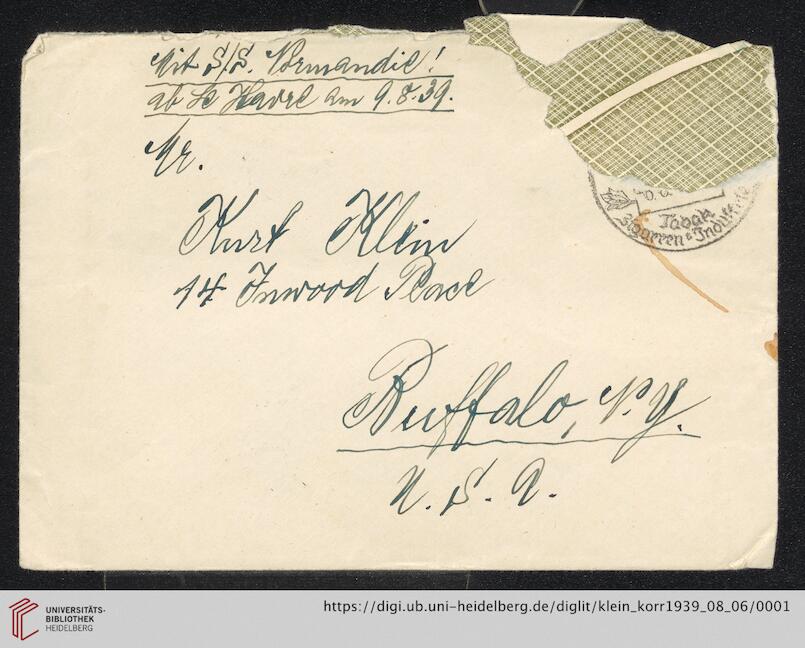 Mit S/S. Normandie!
ab Le Havre am 9.8.39.
Mr.
Kurt Klein
14 Inwood Place
Buffalo, N.Y.
U. S. A.
Tabak
Zigarren & Industrie
UNIVERSITÄTS-
BIBLIOTHEK
HEIDELBERG
https://digi.ub.uni-heidelberg.de/diglit/klein_korr1939_08_06/0001